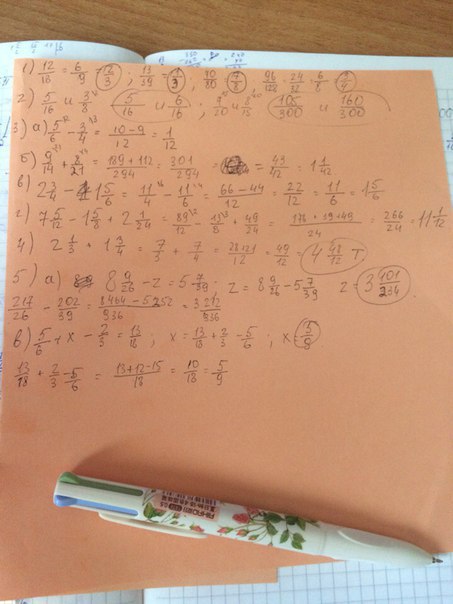 1) 12/18 = 6/9 = 2/3 ; 13/39 = 1/3 ; 70/80 = 7/8 ; 96/128 = 24/32 = 6/8 = 3/4
2) 5/16 и 3/8 5/16 и 6/16 ; 9/20 и 8/15 105/300 и 160/300
3) а) 5/6 - 3/4 = 10-9/12 = 1/12
б) 9/14 + 8/21 = 189+112/294 = 301/294 = 43/42 = 1 1/42
в) 2 3/4 - 1 5/6 = 11/4 - 11/6 = 66-44/12 = 22/12 = 11/6 = 1 5/6
г) 7 5/12 - 1 5/8 + 2 1/24 = 89/12 - 13/8 + 49/24 = 178+39+49/24 = 266/24 = 11 1/12
4) 2 1/3 + 1 3/4 = 7/3 + 7/4 = 28+21/12 = 49/12 = 4 48/12 т
5) а) 8 9/26 - z = 5 7/39 z = 8 9/26 - 5 7/39 z = 3
217/26 - 202/39 = 8464-5252/936 = 3212/936
в) 5/6 + x - 2/3 = 13/18 ; x = 13/18 + 2/3 - 5/6 ; x 5/9
13/18 + 2/3 - 5/6 = 13+12-15/18 = 10/18 = 5/9